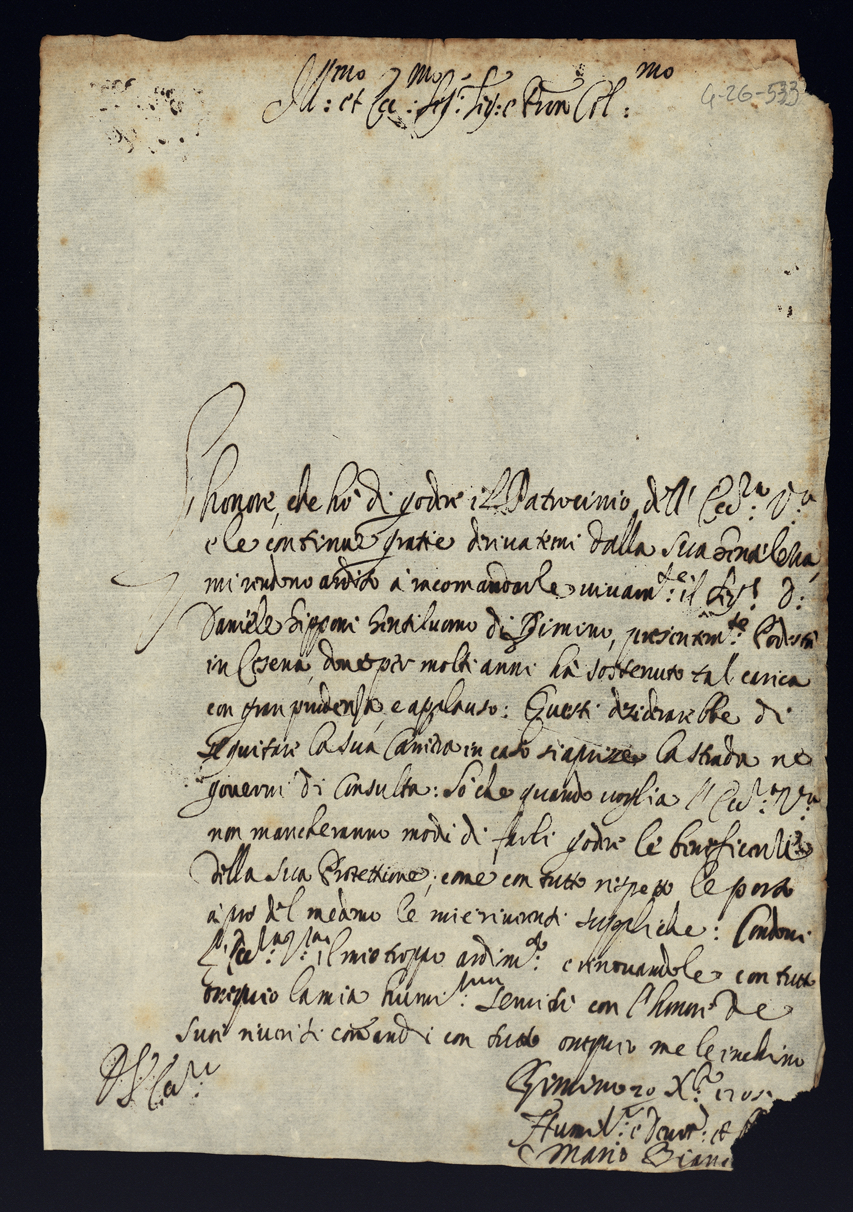 Ill:mo et Ecc:mo Sig:r Sig:r e Pron Col:mo
4-26-533
L'honore, che hò di godere il Patrocinio dell' Ecc:za V:ra
e le continue gratie derivatemi dalla sua
mi rendono ardito à incomandarle vivam:te il Sig:r D:
Daniele Zipponi Gentiluomo di Rimino, presentem:te Podestà
in Cesena, dove per molti anni hà sostenuto tal carica
con gran prudenza, e applauso: Questi desiderarebbe di
seguitare la sua Carriera in caso si aprisse la strada ne
governi di Consulta: Sò che quando voglia l'Ecc:za V:ra
non mancheranno modi di farli godere le beneficenze
della sua Protettione, come con tutto rispetto le porto
à pro del medemo le mie riverenti suppliche: Condoni
l'Ecc:za V:ra il mio troppo ardim:to e rinovandole con tutto
ossequio la mia humil:ma servitù con l'honore de
suoi riveriti comandi con tutto ossequio me le inchino
D. V. Ecc:za
Rimino 20 X:bre 1705
Humil:mo e Devot:mo et
Mario Bian